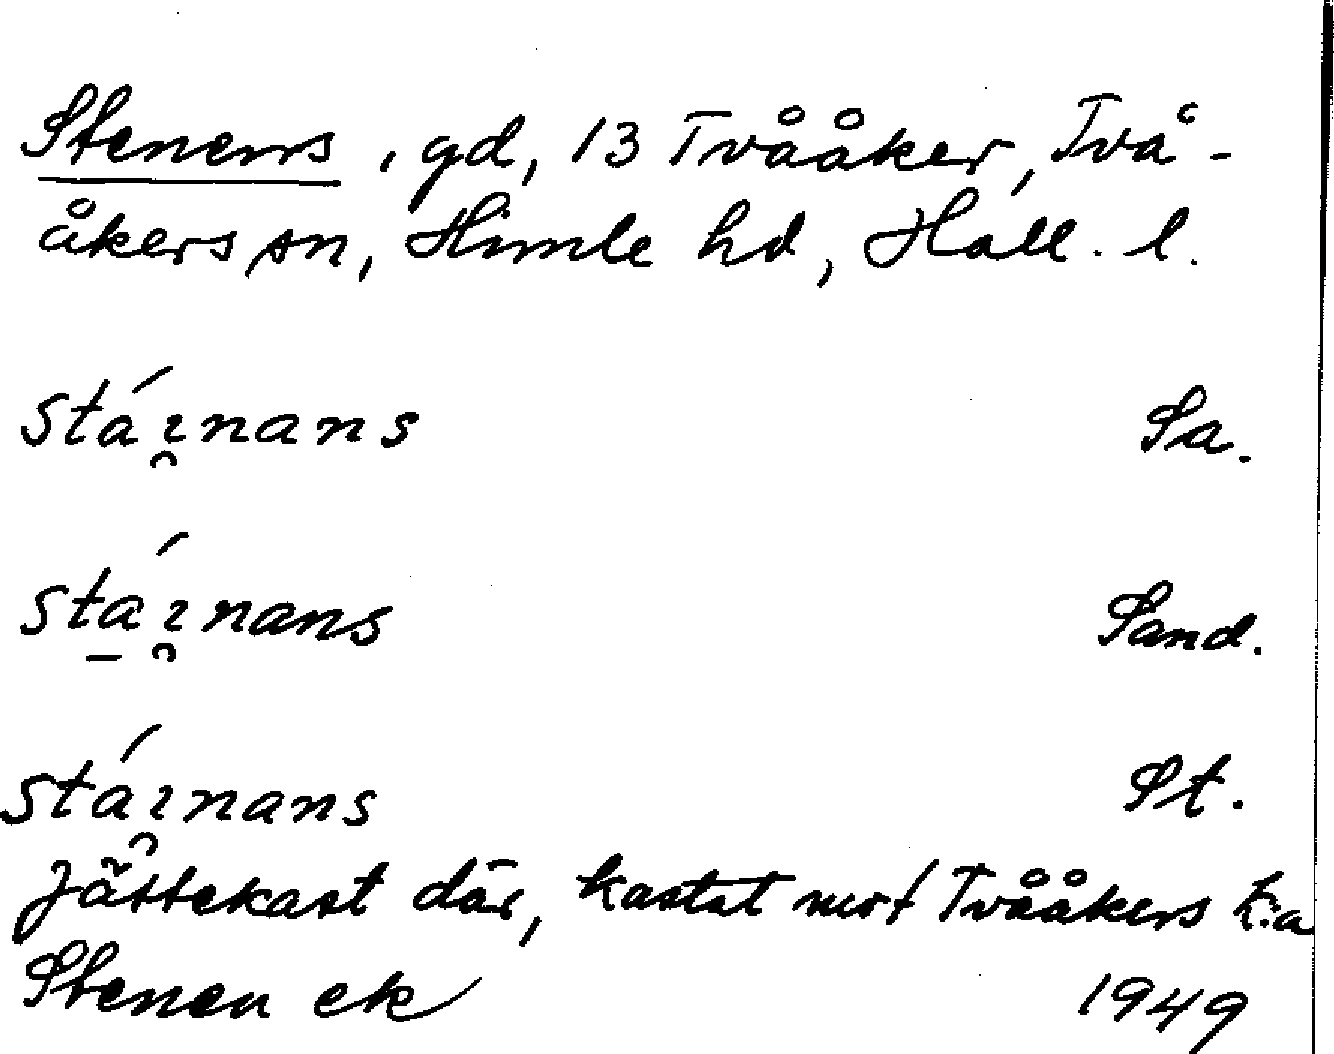 Stenens, gd, 13 Tvååker, Två-
åkers sn, Himle hd, Hall. l.
stáı̯nans Sa.
sta̱ı̯́nans Sand.
stáı̯nans St.
Jättekast där, kastat mot Tvååkers k:a
Stenen ek 1949